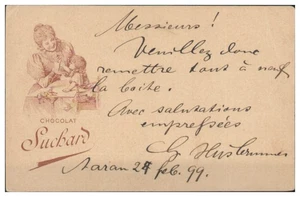 Messieurs !
Veuillez donc
remettre tout à neuf
la boîte.
Avec salutations
empressées
CHOCOLAT
Suchard
Aarau 27 feb. 99.